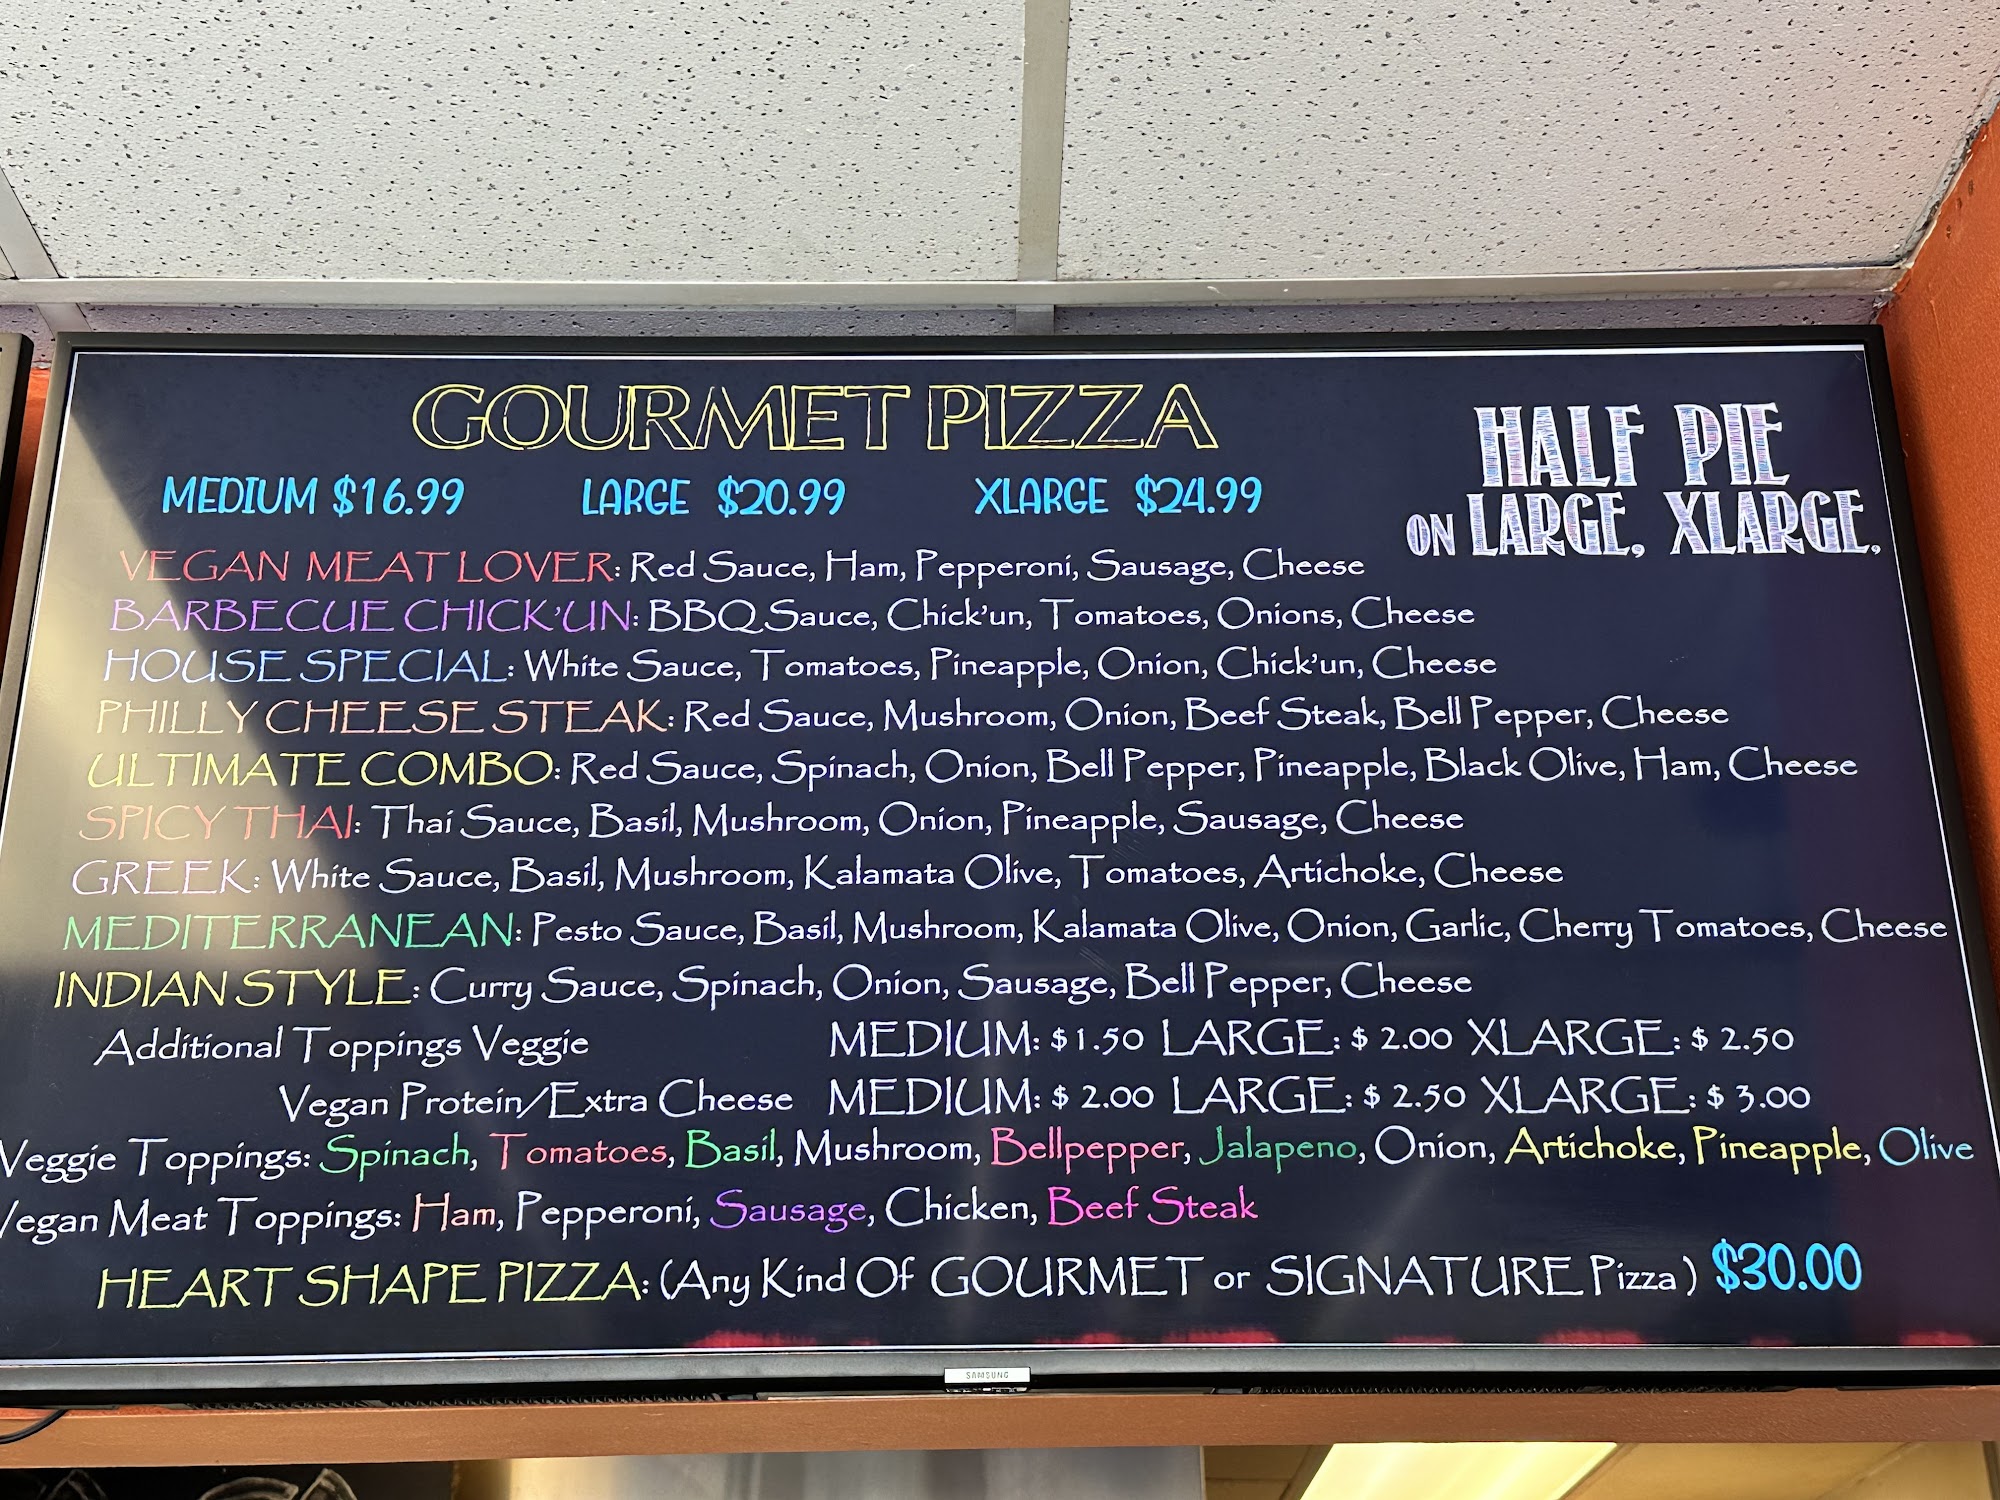 GOURMET PIZZA
HALF PIE
ON LARGE, XLARGE,
MEDIUM $16.99 LARGE $20.99 XLARGE $24.99
VEGAN MEAT LOVER: Red Sauce, Ham, Pepperoni, Sausage, Cheese
BARBECUE CHICK'UN: BBQ Sauce, Chick'un, Tomatoes, Onions, Cheese
HOUSE SPECIAL: White Sauce, Tomatoes, Pineapple, Onion, Chick'un, Cheese
PHILLY CHEESE STEAK: Red Sauce, Mushroom, Onion, Beef Steak, Bell Pepper, Cheese
ULTIMATE COMBO: Red Sauce, Spinach, Onion, Bell Pepper, Pineapple, Black Olive, Ham, Cheese
SPICY THAI: Thai Sauce, Basil, Mushroom, Onion, Pineapple, Sausage, Cheese
GREEK: White Sauce, Basil, Mushroom, Kalamata Olive, Tomatoes, Artichoke, Cheese
MEDITERRANEAN: Pesto Sauce, Basil, Mushroom, Kalamata Olive, Onion, Garlic, Cherry Tomatoes, Cheese
INDIAN STYLE: Curry Sauce, Spinach, Onion, Sausage, Bell Pepper, Cheese
Additional Toppings Veggie MEDIUM: $ 1.50 LARGE: $ 2.00 XLARGE: $ 2.50
Vegan Protein/Extra Cheese MEDIUM: $ 2.00 LARGE: $ 2.50 XLARGE: $ 3.00
Veggie Toppings: Spinach, Tomatoes, Basil, Mushroom, Bellpepper, Jalapeno, Onion, Artichoke, Pineapple, Olive
Vegan Meat Toppings: Ham, Pepperoni, Sausage, Chicken, Beef Steak
HEART SHAPE PIZZA: (Any Kind Of GOURMET or SIGNATURE Pizza) $30.00
SAMSUNG